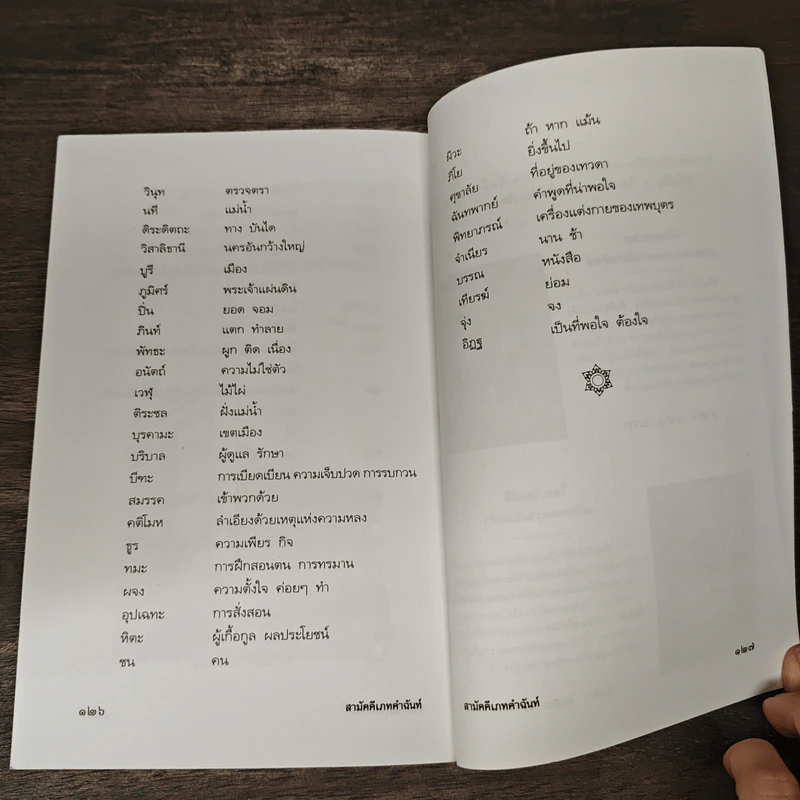 วินุท ตรวจตรา
นที แม่น้ำ
ติระดิตถะ ทาง บันได
วิสาลิธานี นครอันกว้างใหญ่
บูรี เมือง
ภูมิศร์ พระเจ้าแผ่นดิน
ปิ่น ยอด จอม
ภินท์ แตก ทำลาย
พัทธะ ผูก ติด เนื่อง
อนัตถ์ ความไม่ใช่ตัว
เวฬุ ไม้ไผ่
ติระชล ฝั่งแม่น้ำ
บุรคามะ เขตเมือง
บริบาล ผู้ดูแล รักษา
บีฑะ การเบียดเบียน ความเจ็บปวด การรบกวน
สมรรค เข้าพวกด้วย
คติโมห ลำเอียงด้วยเหตุแห่งความหลง
ธูร ความเพียร กิจ
ทมะ การฝึกสอนตน การทรมาน
ผจง ความตั้งใจ ค่อยๆ ทำ
อุปเฉทะ การสั่งสอน
หิตะ ผู้เกื้อกูล ผลประโยชน์
ชน คน
๑๒๖ สามัคคีเภทคำฉันท์
ผิวะ ถ้า หาก แม้น
ภิโย ยิ่งขึ้นไป
ศุขาลัย ที่อยู่ของเทวดา
ฉันทพากย์ คำพูดที่น่าพอใจ
พิทยาภรณ์ เครื่องแต่งกายของเทพบุตร
จำเนียร นาน ช้า
บรรณ หนังสือ
เทียรฆ์ ย่อม
จุ่ง จง
อิฏฐ เป็นที่พอใจ ต้องใจ
๑๒๗
สามัคคีเภทคำฉันท์